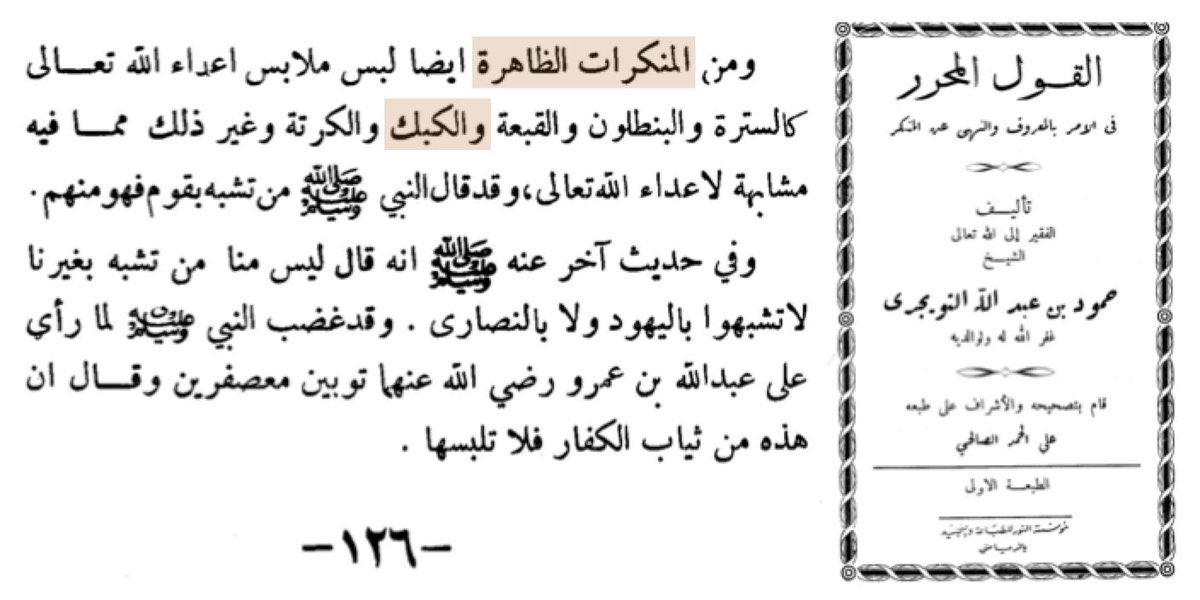 ومن المنكرات الظاهرة ايضا لبس ملابس اعداء الله تعالى
كالسترة والبنطلون والقبعة والكبك والكرتة وغير ذلك مما فيه
مشابهة لاعداء الله تعالى، وقد قال النبي ﷺ من تشبه بقوم فهو منهم.
وفي حديث آخر عنه ﷺ انه قال ليس منا من تشبه بغيرنا
لاتشبهوا باليهود ولا بالنصارى. وقد غضب النبي ﷺ لما رأي
على عبدالله بن عمرو رضي الله عنهما ثوبين معصفرين وقال ان
هذه من ثياب الكفار فلا تلبسها.
-١٢٦-
القول المحرر
في الامر بالمعروف والنهي عن المنكر
تأليف
الفقير إلى الله تعالى
الشيخ
حمود بن عبد الله التويجري
غفر الله له ولوالديه
قام بتصحيحه والأشراف على طبعه
علي الحمد الصالحي
الطبعة الاولى
مؤسسة النور للطباعة والتجليد
بالرياض